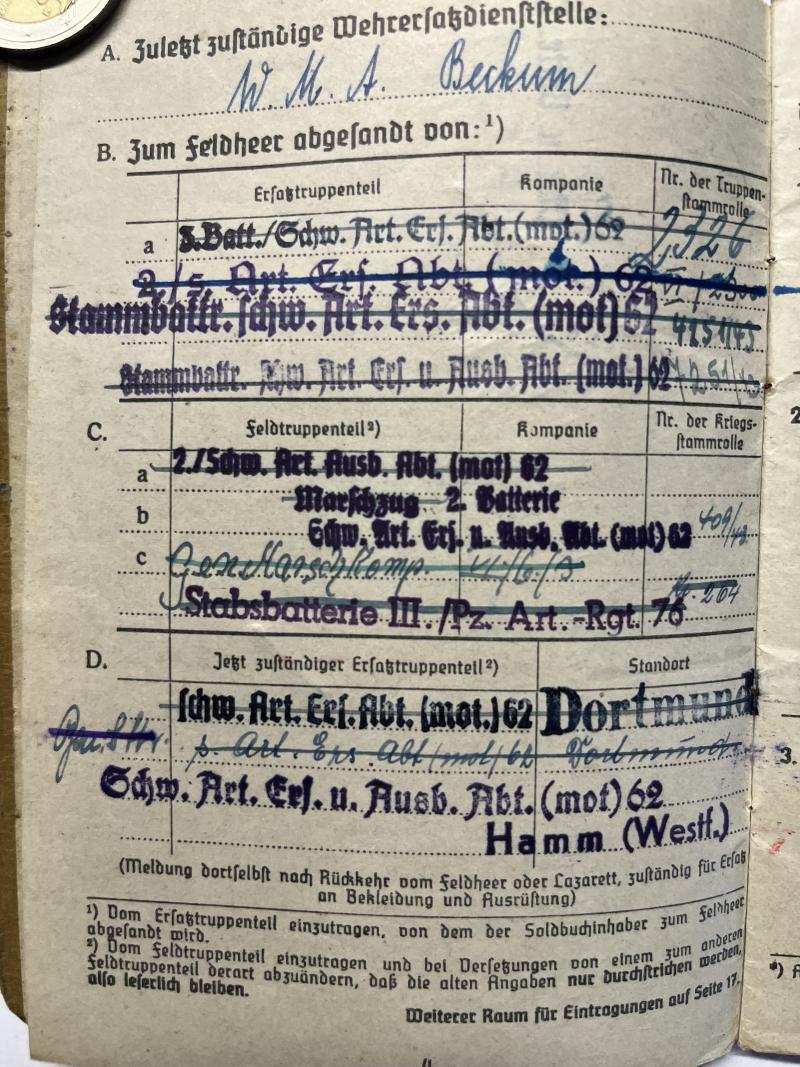 A. Zuletzt zuständige Wehrersatzdienststelle:
W. M. A. Beckum
B. Zum Feldheer abgesandt von:¹)
Ersatztruppenteil Kompanie Nr. der Truppen-
stammrolle
a 3.Batt./Schw. Art. Ers. Abt.(mot.)62 2326
2./s. Art. Ers. Abt. (mot.) 62 VI/
Stammbattr. schw. Art. Ers. Abt. (mot) 62 4251/43
Stammbattr. schw. Art. Ers. u. Ausb. Abt. (mot.) 62
C. Feldtruppenteil²) Kompanie Nr. der Kriegs-
stammrolle
a 2./Schw. Art. Ausb. Abt. (mot) 62
Marschzug 2. Batterie
b Schw. Art. Ers. u. Ausb. Abt. (mot) 62 409/43
c Gen Marsch Komp.
Stabsbatterie III./Pz. Art.-Rgt. 76 264
D. Jetzt zuständiger Ersatztruppenteil²) Standort
schw. Art. Ers. Abt. (mot.) 62 Dortmund
s. Art. Ers Abt (mot) 62 Dortmund
Schw. Art. Ers. u. Ausb. Abt. (mot) 62
Hamm (Westf.)
(Meldung dortselbst nach Rückkehr vom Feldheer oder Lazarett, zuständig für Ersatz
an Bekleidung und Ausrüstung)
¹) Vom Ersatztruppenteil einzutragen, von dem der Soldbuchinhaber zum Feldheer
abgesandt wird.
²) Vom Feldtruppenteil einzutragen und bei Versetzungen von einem zum anderen
Feldtruppenteil derart abzuändern, daß die alten Angaben nur durchstrichen werden,
also leserlich bleiben.
Weiterer Raum für Eintragungen auf Seite 17.
2
3.
*)